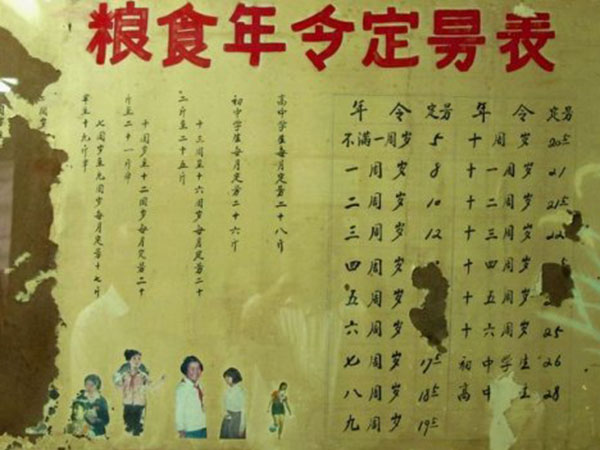 粮食年令定量表
年令 定量 年令 定量
不满一周岁 5 十周岁 20⁵
一周岁 8 十一周岁 21
二周岁 10 十二周岁 21⁵
三周岁 12 十三周岁 22
四周岁 十四周岁
五周岁 十五周岁
六周岁 十六周岁 25
七周岁 17⁵ 初中学生 26
八周岁 18⁵ 高中生 28
九周岁 19⁵
高中学生每月定量二十八斤
初中学生每月定量二十六斤
十三周至十六周岁每月定量二十
二斤至二十五斤
十周岁至十二周岁每月定量二十
斤至二十一斤半
七周岁至九周岁每月定量十七斤
半至十九斤半
周岁